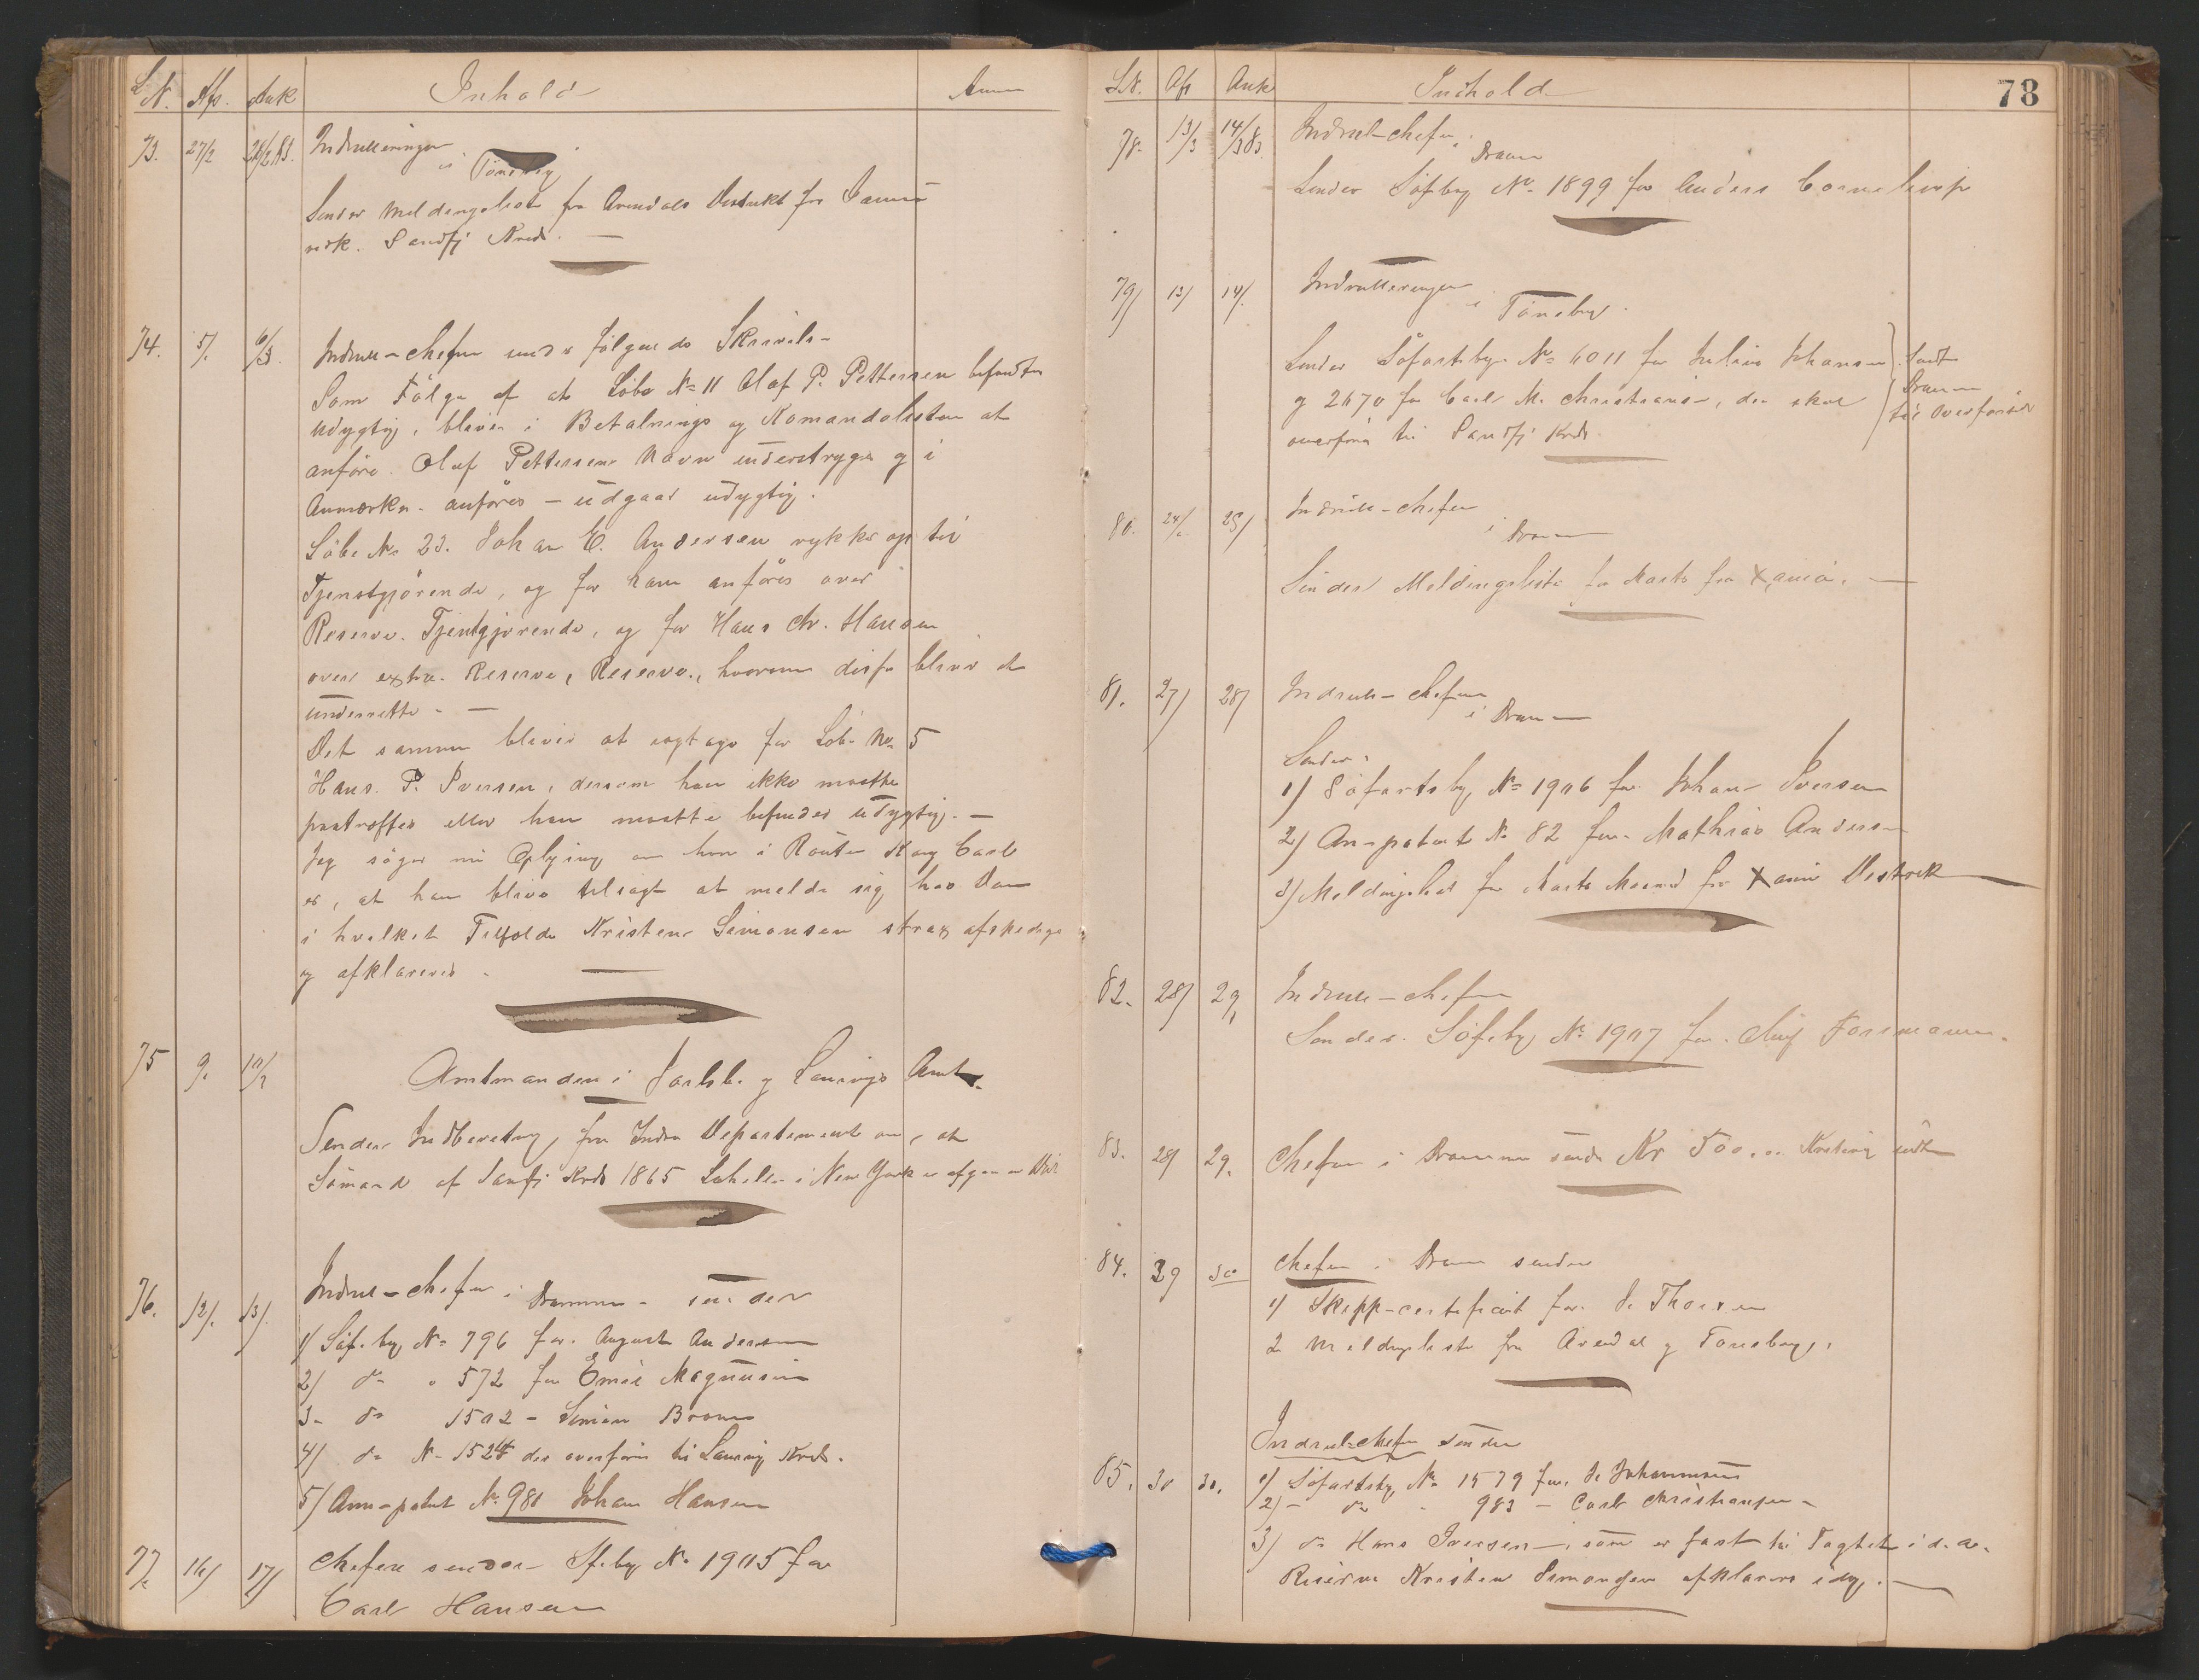 L.N. Afs. Ank Inhold Anm
73. 27/2 28/2 83. Indrulleringen
i Tönsberg
Sender Meldingsliste fra Arendals Distrikt for Januar
vedk. Sandfj Kreds. —
74. 5/. 6/3. Indrull-chefen sender følgende Skrivelse-
Som Fölge af at Löbe No 11 Olaf P. Pettersen befindes
udygtig, bliver i Betalnings og Komandolisten at
anføre. Oluf Pettersens Navn understryges og i
Anmerkn. anföres - udgaar udygtig.
Löbe No 23. Johan E. Andersen rykker op til
Tjenstgjörende, og for ham anföres over
Reserve. Tjentgjörende, og for Hans Chr. Hansen
over extra. Reserve, Reserve, hvorom disse bliver at
underrette. —
Det samme bliver at iagtage for Löb. No 5
Hans. P. Iversen, dersom han ikke maatte
paatreffes eller han maatte befindes udygtig. —
Jeg söger nu Oplysning om han i Route Kong Carl
er, at han blive tilsagt at melde sig hos Dem
i hvilket Tilfælde Kristen Simonsen strax afskediges
og afklareres -
75 9. 10/3 Amtmanden i Jarlsb. og Laurvigs Amt.
Sender Indberetng fra Indre Departementet om, at
Sömand af Sanfj Kreds 1865 i New York er afgaaet ved
76. 12/. 13/. Indrul-chefen i Drammen - sender
1) Söf. by No 796 for. August Andersen
2) do " 572 for Emil Magnusen
3- do 1502 - Simon Broms
4) do N- 1524 der overföres til Laurvig Kreds.
5) Ann-patent No 980 Johan Hansen
77. 16/ 17/ Chefen sender Sf.by No 1905 for
Carl Hansen
78
L.N. Afs Ank Indhold
78. 13/3 14/3 83. Indrul-chefen i
Dramn
Sender Söfby No 1899 for Anders Corneliusen
79/ 13/ 14/. Indrulleringen
i Tönsberg.
Sender Söfartsby No 6011 for Julius Johansen
og 2670 for Carl M. Christians-, der skal
overföres til Sandfj Kreds.
Sendt
Dramn
for Overförsel
80. 24/. 25/ Indrull-chefen
i Dramn
Sender Meldingsliste for Marts fra Xania. —
81. 27/ 28/ Indrull-chefen
i Dramn
Sender:
1) Söfartsby No 1906 for Johan Iversen
2) Ann-patent No 82 for Mathias Anders-
3) Meldingslist for Marts Maaned fra Xania Distrik
82. 28/ 29/ Indrull-chefen
Sender. Söf.by No 1907 for. Forsmann.
83. 28/ 29. Chefen i Drammen sender Kr 500.00
84. 29 30 Chefen i Dramn sender
1) Skipp-certifikat for. Thorsen
2 Meldingsliste fra Arendal og Tönsberg.
Indrul-chefen sender
85. 30 30. 1) Söfartsby No 1579 for. Johannesen
2) - do " 983 - Carl Christiansen -
3) do Hans Iversen, som er fast til Togtet i d. A.
Reserve Kristen Simonsen afklarers idag. —